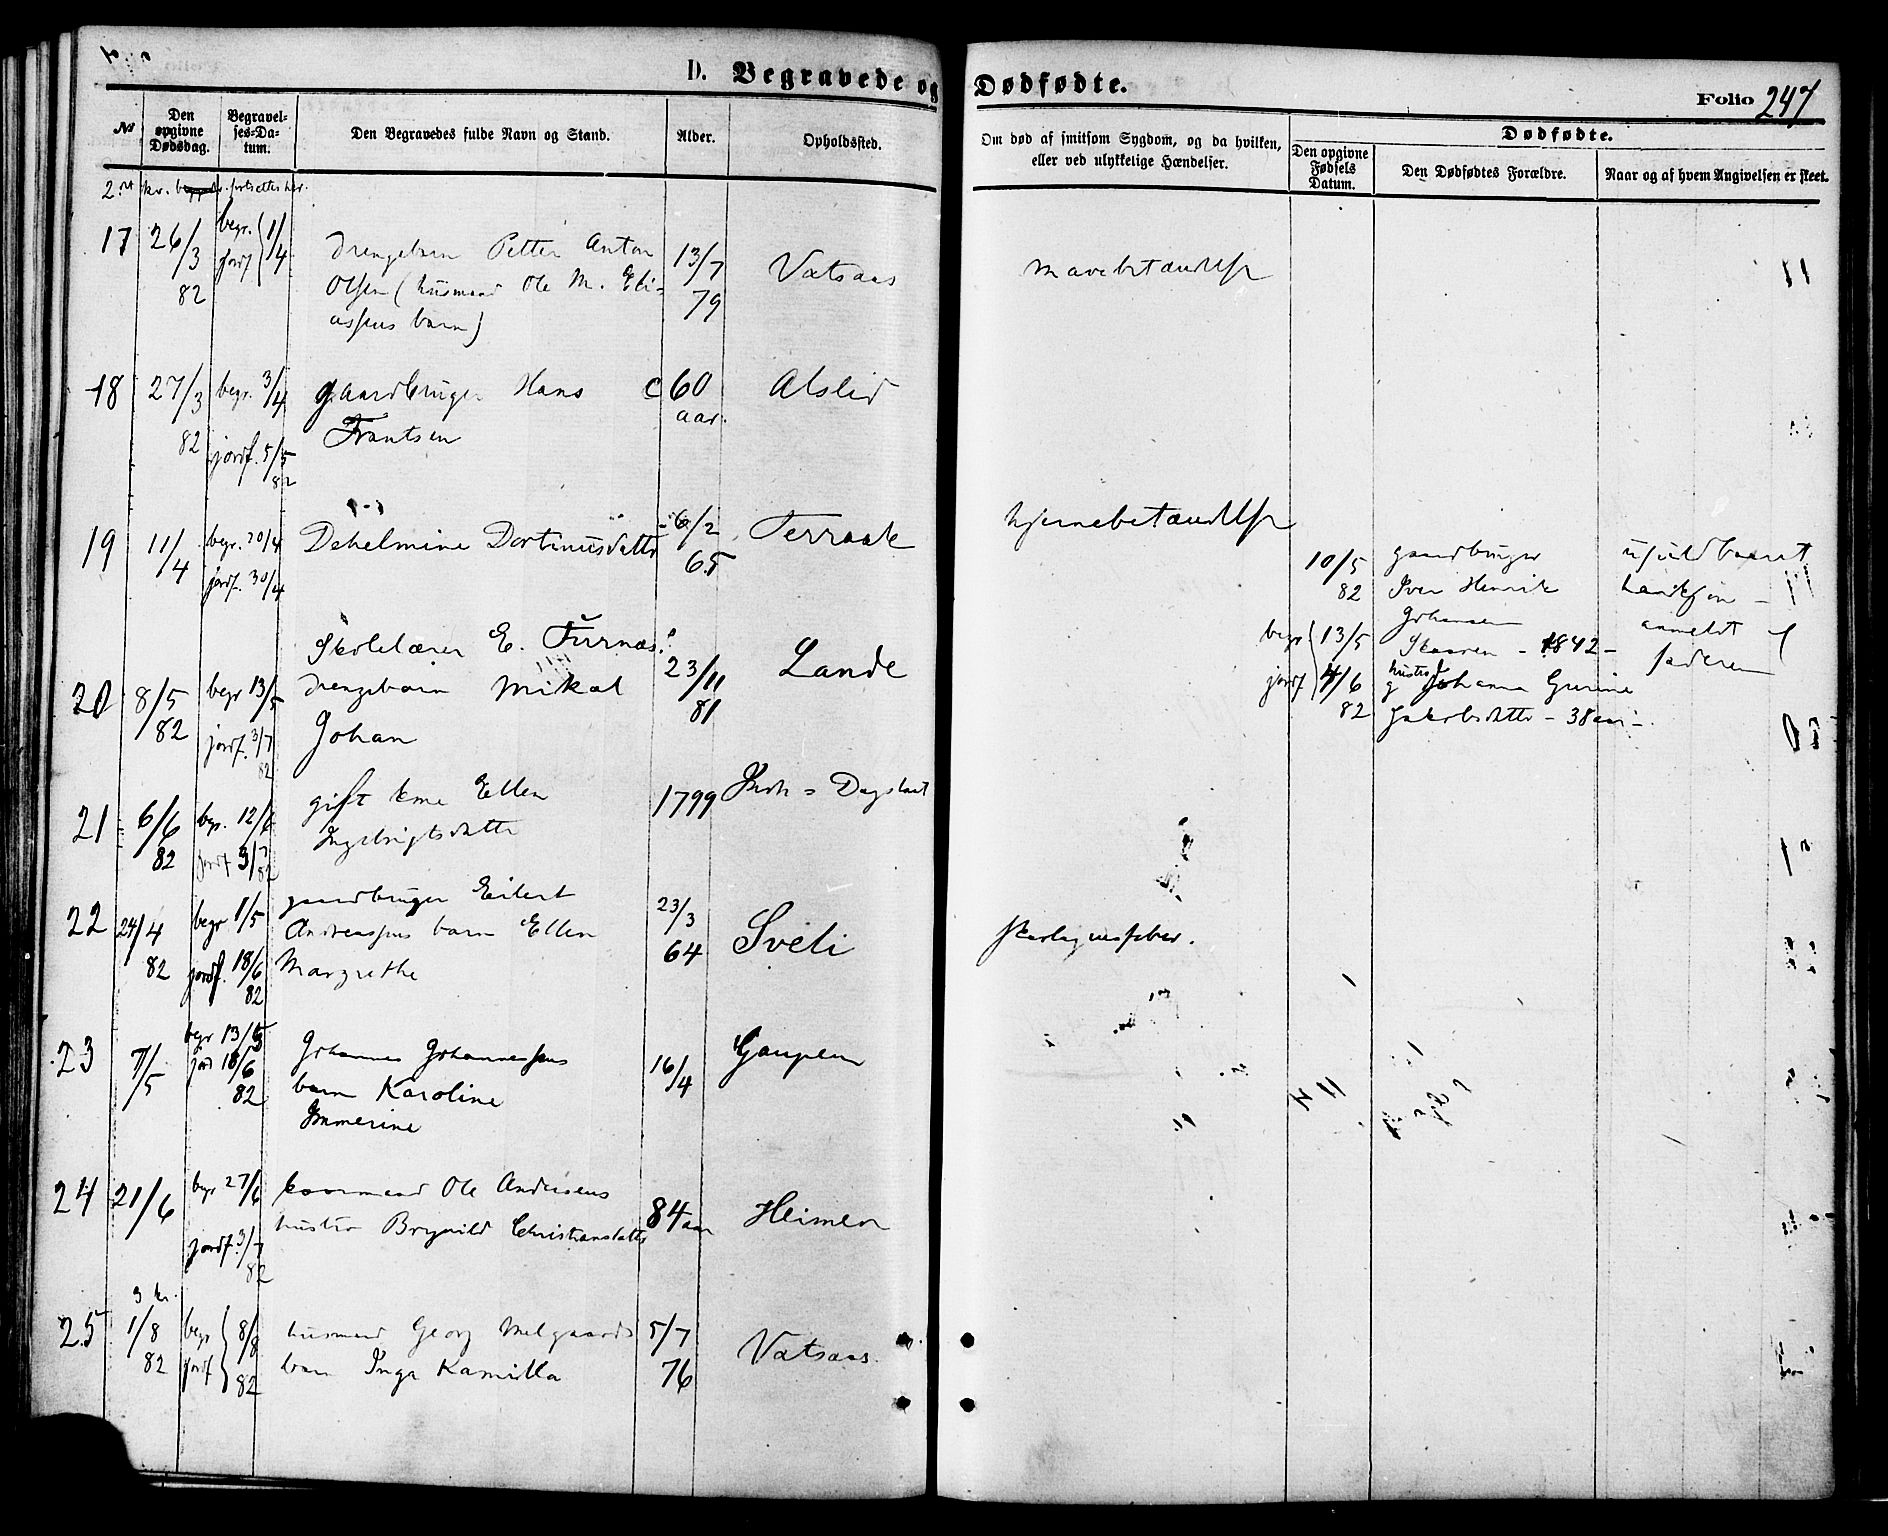 D. Begravede og Dødfødte.
Folio 247
No
Den opgivne Dødsdag.
Begravelses-Datum.
Den Begravedes fulde Navn og Stand.
Alder.
Opholdssted.
Om død af smitsom Sygdom, og da hvilken, eller ved ulykkelige Hændelser.
Dødfødte.
Den opgivne Fødsels Datum.
Den Dødfødtes Forældre.
Naar og af hvem Angivelsen er skeet.
17 26/3 82 begr. jordf 1/4 Drengebarn Petter Anton 13/7 79 Vatsaas mavebetændelse
Olsen (husmand Ole M. Eli-
assens barn)
18 27/3 82 begr. 3/4 gaardbruger Hans c 60 aar. Alslid
jordf. 5/5 82 Frantsen
19 11/4 begr. 20/4 Dehelmine Dortinusdatter 6/2 65 Terraak hjernebetændelse
jordf. 30/4
10/5 82 gaardbruger
Iver Henrik
Johansen
begr 13/5 Skaaren - 1842 -
jordf 4/6 82 hustro Johanna Gurine
Jakobsdatter - 38 aar -
anmeldt af
faderen
Skolelærer E. Furnæs.
20 8/5 82 begr 13/5 drengebarn Mikal 23/11 81 Lande
jordf. 3/7 82 Johan
21 6/6 82 begr. 12/6 gift kone Ellen 1799
jordf 3/7 82 Ingebrigtsdatter
22 24/4 82 begr 1/5 gaardbruger Eilert 23/3 64 Sveli skarlagensfeber.
jordf. 18/6 82 Andreassens barn Ellen
Margrethe
23 7/5 begr 13/5 Johannes Johannessens 16/4 Gaupen
jord 18/6 82 barn Karoline
Immerine
24 21/6 begr 27/6 Ole Andersens 84 aar Heimen
jordf. 3/7 82 hustro Brynild Christiansdatter
3 kv.
25 1/8 82 begr jordf 8/8 82 husmand Georg Melgaards 5/7 76 Vatsaas.
barn Inga Kamilla